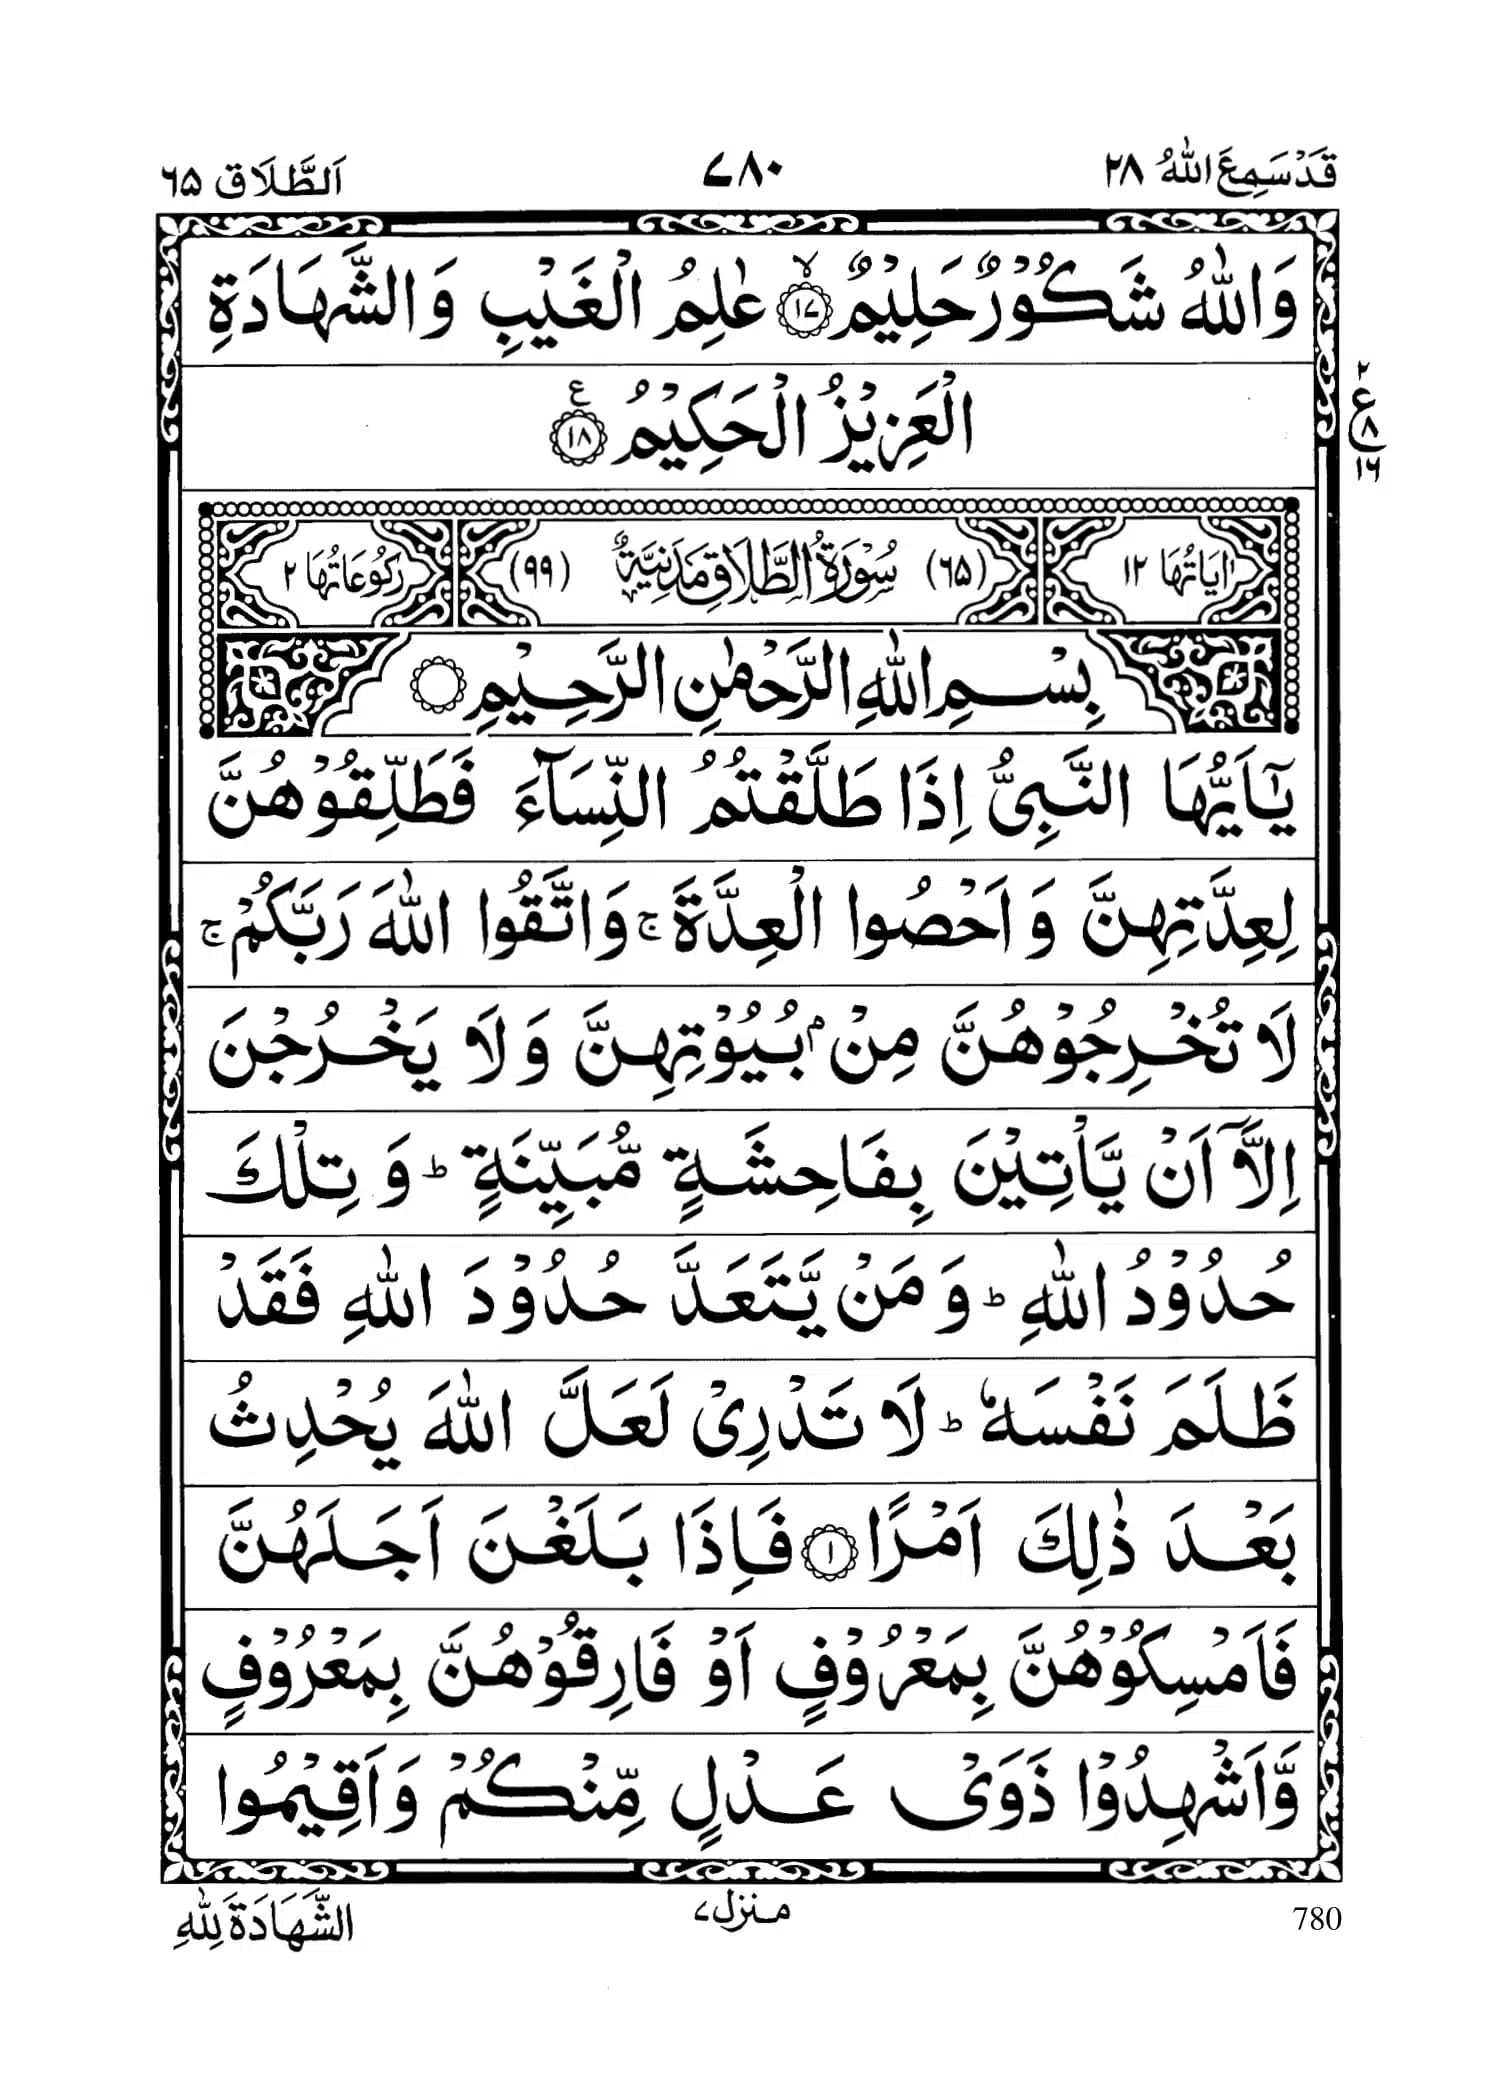 قَدْ سَمِعَ اللّٰهُ ٢٨
٧٨٠
اَلطَّلَاق ٦٥
وَاللّٰهُ شَكُوْرٌ حَلِيْمٌ ۙ﴿١٧﴾ عٰلِمُ الْغَيْبِ وَالشَّهَادَةِ
الْعَزِيْزُ الْحَكِيْمُ ﴿١٨﴾ ع
٢
ع
٨
١٦
اٰيَاتُهَا ١٢
(٦٥) سُوْرَةُ الطَّلَاقِ مَدَنِيَّةٌ (٩٩)
رُكُوْعَاتُهَا ٢
بِسْمِ اللّٰهِ الرَّحْمٰنِ الرَّحِيْمِ ۝
يٰٓاَيُّهَا النَّبِىُّ اِذَا طَلَّقْتُمُ النِّسَآءَ فَطَلِّقُوْهُنَّ
لِعِدَّتِهِنَّ وَ اَحْصُوا الْعِدَّةَ ۚ وَاتَّقُوا اللّٰهَ رَبَّكُمْ ۚ
لَا تُخْرِجُوْهُنَّ مِنْۢ بُيُوْتِهِنَّ وَ لَا يَخْرُجْنَ
اِلَّآ اَنْ يَّاْتِيْنَ بِفَاحِشَةٍ مُّبَيِّنَةٍ ؕ وَ تِلْكَ
حُدُوْدُ اللّٰهِ ؕ وَ مَنْ يَّتَعَدَّ حُدُوْدَ اللّٰهِ فَقَدْ
ظَلَمَ نَفْسَهٗ ؕ لَا تَدْرِىْ لَعَلَّ اللّٰهَ يُحْدِثُ
بَعْدَ ذٰلِكَ اَمْرًا ﴿١﴾ فَاِذَا بَلَغْنَ اَجَلَهُنَّ
فَاَمْسِكُوْهُنَّ بِمَعْرُوْفٍ اَوْ فَارِقُوْهُنَّ بِمَعْرُوْفٍ
وَّاَشْهِدُوْا ذَوَىْ عَدْلٍ مِّنْكُمْ وَاَقِيْمُوا
780
منزل ٧
الشَّهَادَةَ لِلّٰهِ